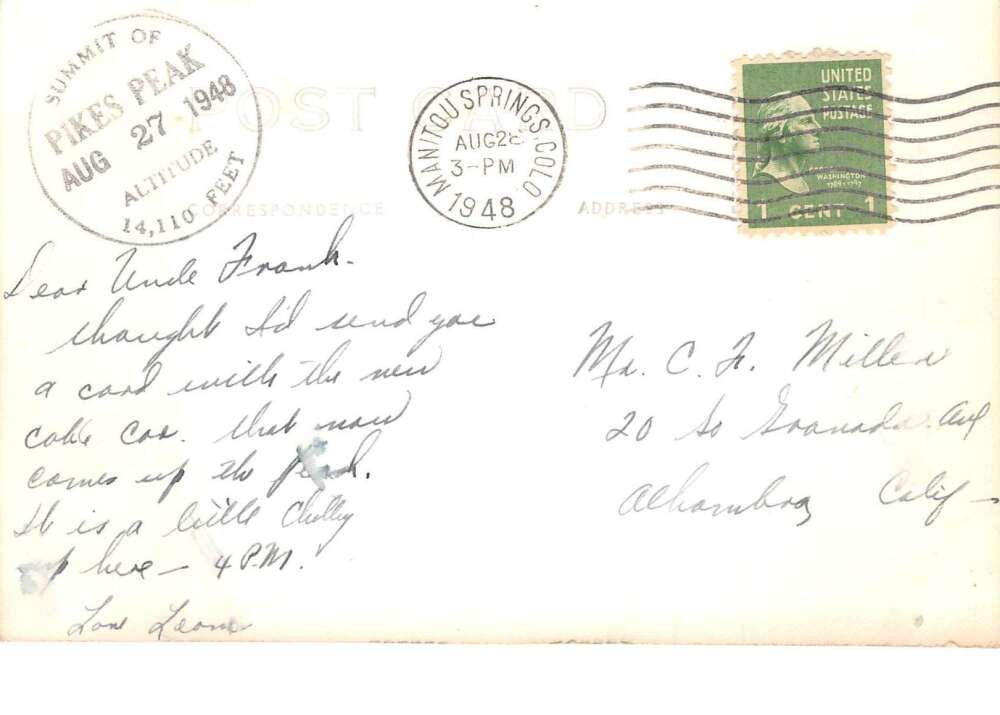 SUMMIT OF
PIKES PEAK
AUG 27 1948
ALTITUDE
14,110 FEET
POST CARD
MANITOU SPRINGS, COLO.
AUG 28
3-PM
1948
UNITED
STATES
POSTAGE
WASHINGTON
1789-1797
1 CENT 1
CORRESPONDENCE
ADDRESS
Dear Uncle Frank.
thought I'd send you
a card with the new
cable car. that now
comes up the peak.
It is a little Chilly
up here — 4 P.M.
Love Leona
Mr. C. F. Miller
20 So Granada Ave
Alhambra, Calif —